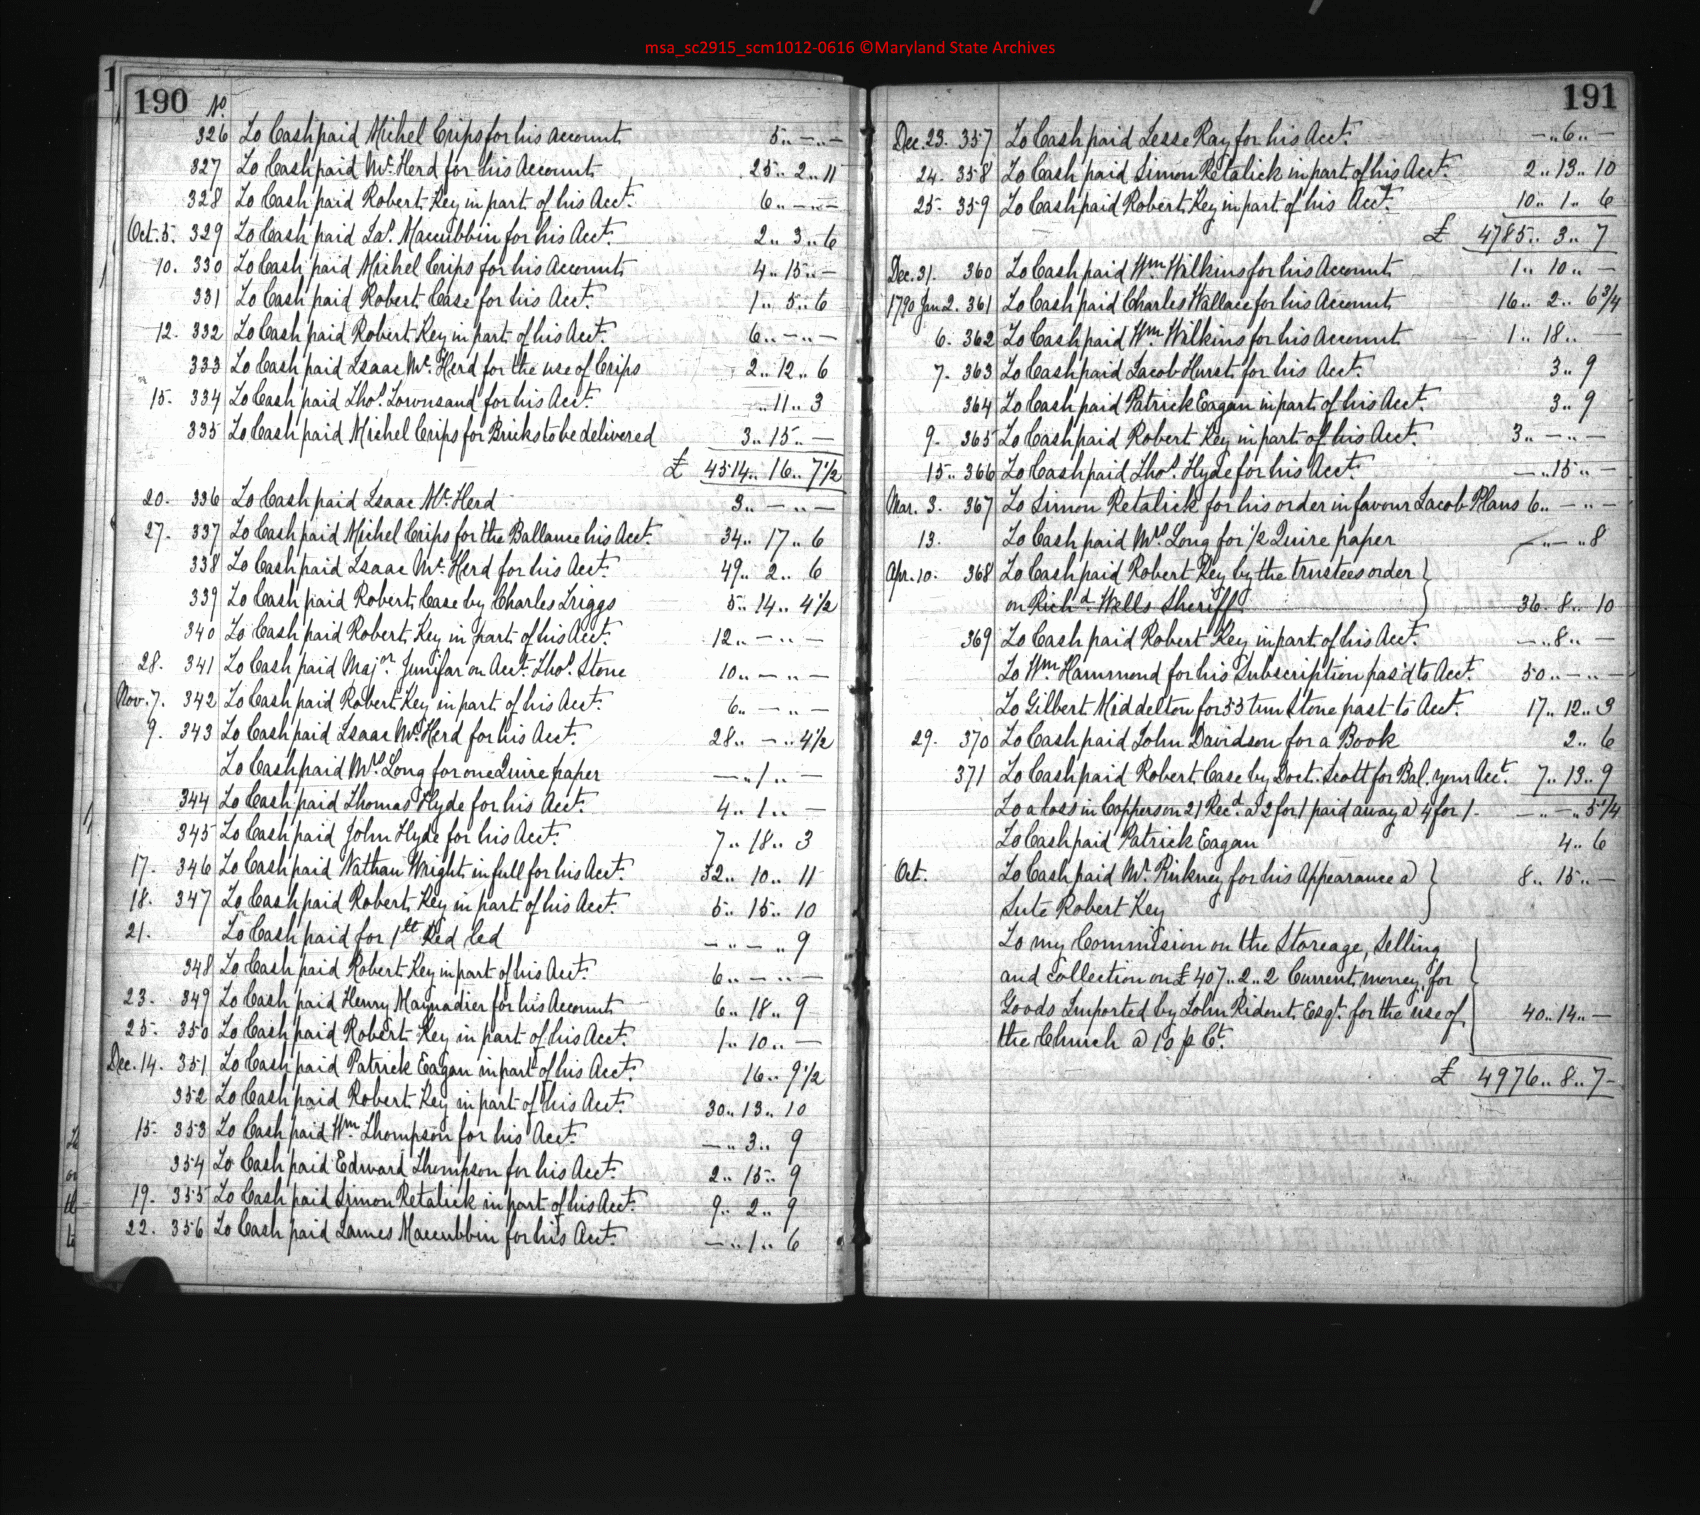 msa_sc2915_scm1012-0616 ©Maryland State Archives
190
No.
326 To Cash paid Michel Crips for his account 5.. — .. —
327 To Cash paid Mc. Herd for his Account 25.. 2.. 11
328 To Cash paid Robert Key in part of his Acct. 6.. — .. —
Oct. 5. 329 To Cash paid Jas. Maccubbin for his Acct. 2.. 3.. 6
10. 330 To Cash paid Michel Crips for his Account 4.. 15.. —
331 To Cash paid Robert Case for his Acct. 1.. 5.. 6
12. 332 To Cash paid Robert Key in part of his Acct. 6.. — .. —
333 To Cash paid Isaac Mc. Herd for the use of Crips 2.. 12.. 6
15. 334 To Cash paid Thos. Townsand for his Acct. .. 11.. 3
335 To Cash paid Michel Crips for Bricks to be delivered 3.. 15.. —
£ 4514.. 16.. 7 1/2
20. 336 To Cash paid Isaac Mc. Herd 3.. — .. —
27. 337 To Cash paid Michel Crips for the Ballance his Acct. 34.. 17.. 6
338 To Cash paid Isaac Mc. Herd for his Acct. 49.. 2.. 6
339 To Cash paid Robert Case by Charles Griggs 5.. 14.. 4 1/2
340 To Cash paid Robert Key in part of his Acct. 12.. — .. —
28. 341 To Cash paid Major. Junifar on Acct. Thos. Stone 10.. — .. —
Nov. 7. 342 To Cash paid Robert Key in part of his Acct. 6.. — .. —
9. 343 To Cash paid Isaac Mc. Herd for his Acct. 28.. — .. 4 1/2
To Cash paid Mrs. Long for one Quire paper — .. 1.. —
344 To Cash paid Thomas Hyde for his Acct. 4.. 1.. —
345 To Cash paid John Hyde for his Acct. 7.. 18.. 3
17. 346 To Cash paid Nathan Wright in full for his Acct. 32.. 10.. 11
18. 347 To Cash paid Robert Key in part of his Acct. 5.. 15.. 10
21. To Cash paid for 1 lt Red led — .. — .. 9
348 To Cash paid Robert Key in part of his Acct. 6.. — .. —
23. 349 To Cash paid Henry Maynadier for his Account 6.. 18.. 9
25. 350 To Cash paid Robert Key in part of his Acct. 1.. 10.. —
Dec. 14. 351 To Cash paid Patrick Eagan in part of his Acct. 16.. 9 1/2
352 To Cash paid Robert Key in part of his Acct. 30.. 13.. 10
15. 353 To Cash paid Wm. Thompson for his Acct. — .. 3.. 9
354 To Cash paid Edward Thompson for his Acct. 2.. 15.. 9
19. 355 To Cash paid Simon Retalick in part of his Acct. 9.. 2.. 9
22. 356 To Cash paid James Maccubbin for his Acct. — .. 1.. 6
191
Dec. 23. 357 To Cash paid Jesse Ray for his Acct. — .. 6.. —
24. 358 To Cash paid Simon Retalick in part of his Acct. 2.. 13.. 10
25. 359 To Cash paid Robert Key in part of his Acct. 10.. 1.. 6
£ 4785.. 3.. 7
Dec. 31. 360 To Cash paid Wm. Wilkins for his Account 1.. 10.. —
1790 Jan 2. 361 To Cash paid Charles Wallace for his Account 16.. 2.. 6 3/4
6. 362 To Cash paid Wm. Wilkins for his Account 1.. 18.. —
7. 363 To Cash paid Jacob Hurst for his Acct. 3.. 9
364 To Cash paid Patrick Eagan in part of his Acct. 3.. 9
9. 365 To Cash paid Robert Key in part of his Acct. 3.. — .. —
15.. 366 To Cash paid Thos. Hyde for his Acct. — .. 15.. —
Mar. 3. 367 To Simon Retalick for his order in favour Jacob Plans 6.. — .. —
13. To Cash paid Mrs. Long for 1/2 Quire paper — .. — .. 8
Apr. 10. 368 To Cash paid Robert Key by the trustees order
on Richd. Wells Sheriff 36.. 8.. 10
369 To Cash paid Robert Key in part of his Acct. — .. 8.. —
To Wm. Hammond for his Subscription pas'd to Acct. 50.. — .. —
To Gilbert Middelton for 53 tun Stone past to Acct. 17.. 12.. 3
29. 370 To Cash paid John Davidson for a Book 2.. 6
371 To Cash paid Robert Case by Doct. Scott for Bal. your Acct. 7.. 13.. 9
To a loss in Coppers on 21 Recd. a 2 for 1 paid away a 4 for 1. — .. — .. 5 1/4
To Cash paid Patrick Eagan 4.. 6
Oct. To Cash paid Mr. Pinkney for his Appearance a) 8.. 15.. —
Sute Robert Key
To my Commision on the Storeage, Selling
and collection on £ 407.. 2.. 2 Current money, for
Goods Imported by John Ridout Esqr. for the use of 40.. 14.. —
the Church a 10 p Ct.
£ 4976.. 8.. 7 —